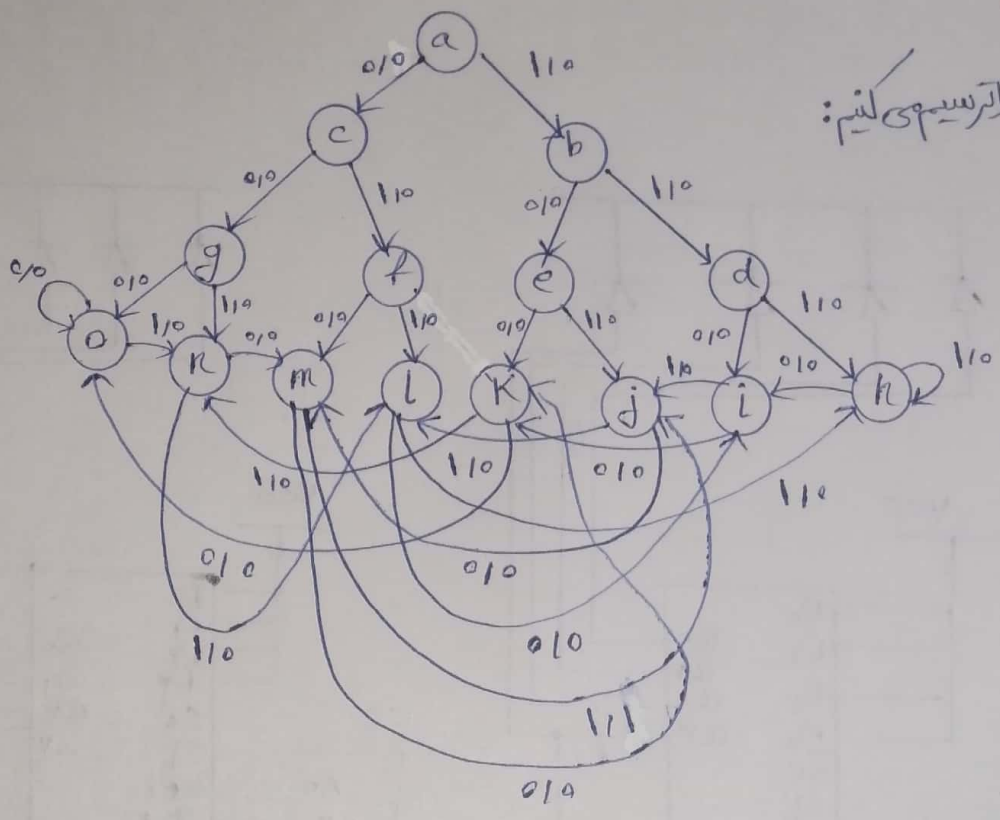 a
0/0
1/0
ا ترسیم می کنیم:
c
b
0/0
1/0
0/0
1/0
g
f
e
d
0/0
0/0
1/0
0/0
1/0
0/0
1/0
0/0
1/0
o
1/0
n
0/0
m
l
k
j
1/0
i
0/0
h
1/0
1/0
1/0
0/0
1/0
0/0
0/0
1/0
0/0
1/1
0/0